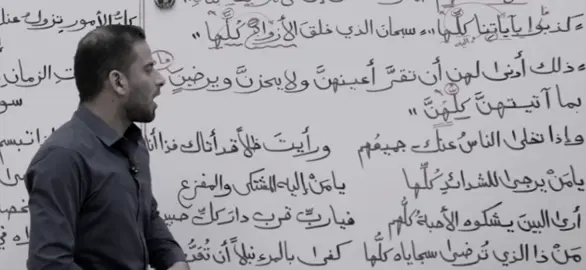 كلُّ الأمور تزول عنك
«كذبوا بآياتنا كلِّها»، «سبحان الذي خلق الأزواج كلَّها»
«ذلك أدنى أن تقرَّ أعينهنَّ ولا يحزنَّ ويرضين
ت الزمان
بما آتيتهنَّ كلهنَّ»
فإذا تخلى الناسُ عنك جميعُهم ورأيتَ ظلاً قد أتاك
يا مَنْ يرجى للشدائد كلِّها يا مَنْ إليه المُشتكى والمفزع
أرى البين يشكوه الأحبة كلُّهم فيا ربِّ قرب دار كلِّ حبيب
مَنْ ذا الذي تُرضى سجاياه كلُّها كفى بالمرء نبلاً أن تُعَدَّ